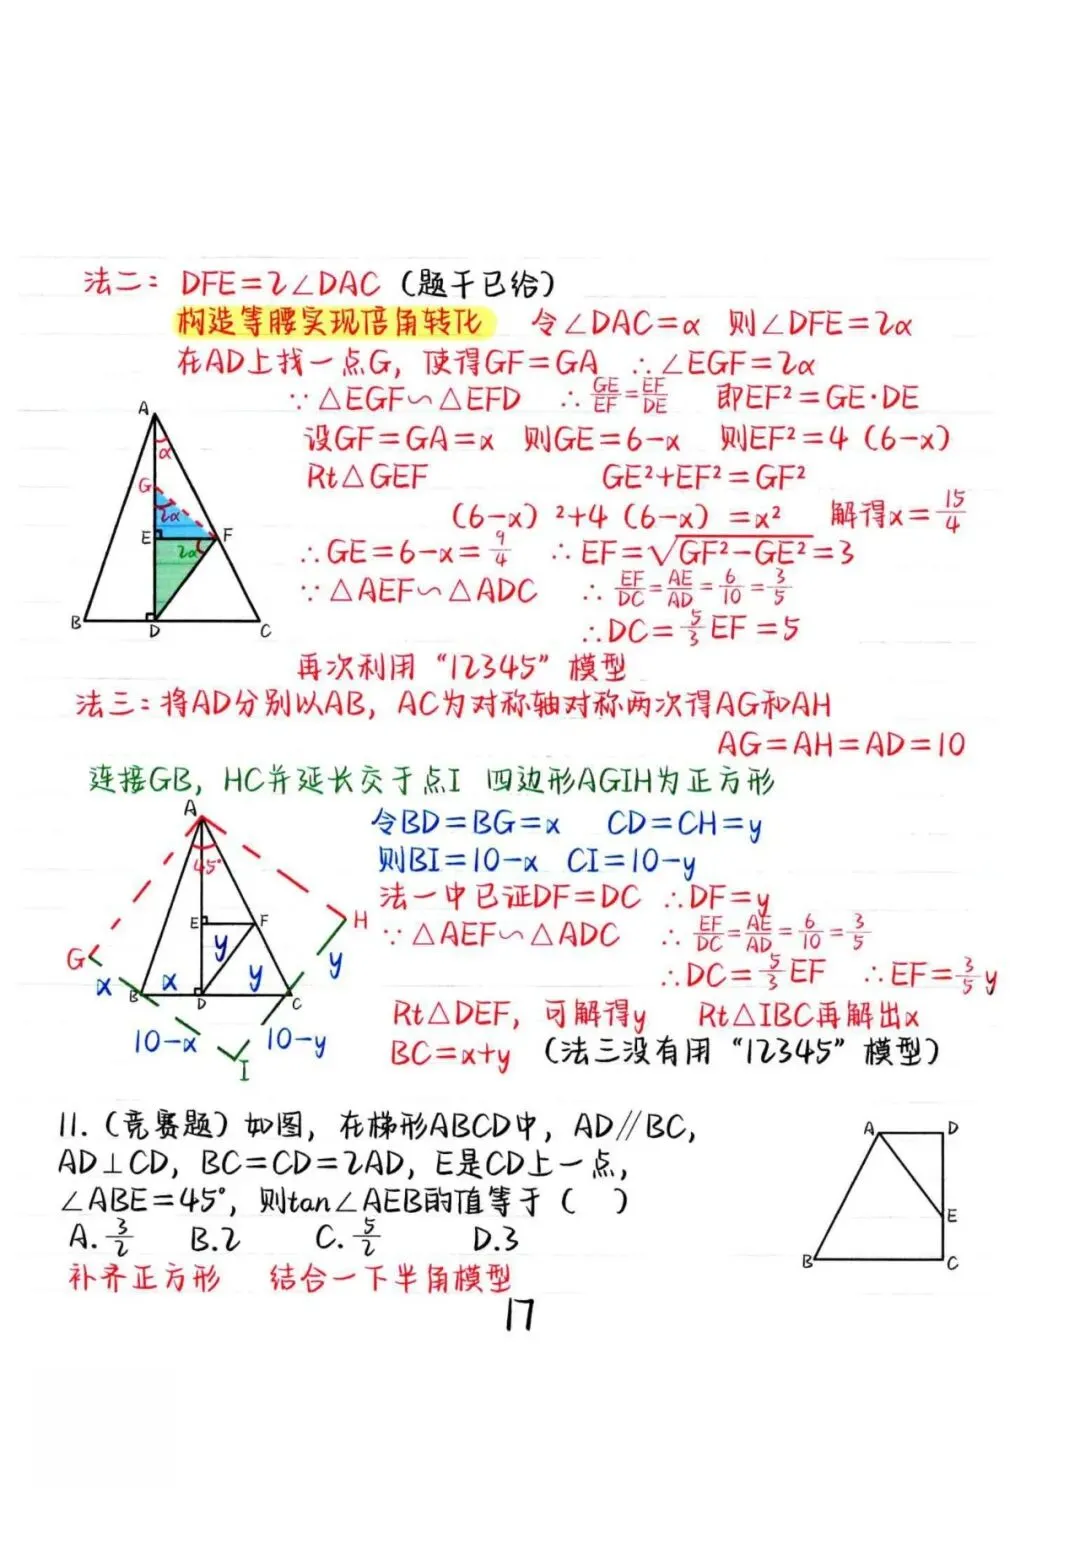 法二：DFE=2∠DAC（题干已给）
构造等腰实现倍角转化 令∠DAC=α 则∠DFE=2α
在AD上找一点G，使得GF=GA ∴∠EGF=2α
∵△EGF∽△EFD ∴GE/EF=EF/DE 即EF²=GE·DE
设GF=GA=x 则GE=6-x 则EF²=4（6-x）
Rt△GEF GE²+EF²=GF²
（6-x）²+4（6-x）=x² 解得x=15/4
∴GE=6-x=9/4 ∴EF=√GF²-GE²=3
∵△AEF∽△ADC ∴EF/DC=AE/AD=6/10=3/5
∴DC=5/3EF=5
再次利用“12345”模型
A
α
G
2α
E
F
2α
B
D
C
法三：将AD分别以AB，AC为对称轴对称两次得AG和AH
AG=AH=AD=10
连接GB，HC并延长交于点I 四边形AGIH为正方形
令BD=BG=x CD=CH=y
则BI=10-x CI=10-y
法一中已证DF=DC ∴DF=y
∵△AEF∽△ADC ∴EF/DC=AE/AD=6/10=3/5
∴DC=5/3EF ∴EF=3/5y
Rt△DEF，可解得y Rt△IBC再解出x
BC=x+y（法三没有用“12345”模型）
A
45°
E
F
H
G
y
y
x
B
x
D
y
C
10-x
10-y
I
11.（竞赛题）如图，在梯形ABCD中，AD∥BC，
AD⊥CD，BC=CD=2AD，E是CD上一点，
∠ABE=45°，则tan∠AEB的值等于（ ）
A.3/2 B.2 C.5/2 D.3
补齐正方形 结合一下半角模型
A
D
E
B
C
17